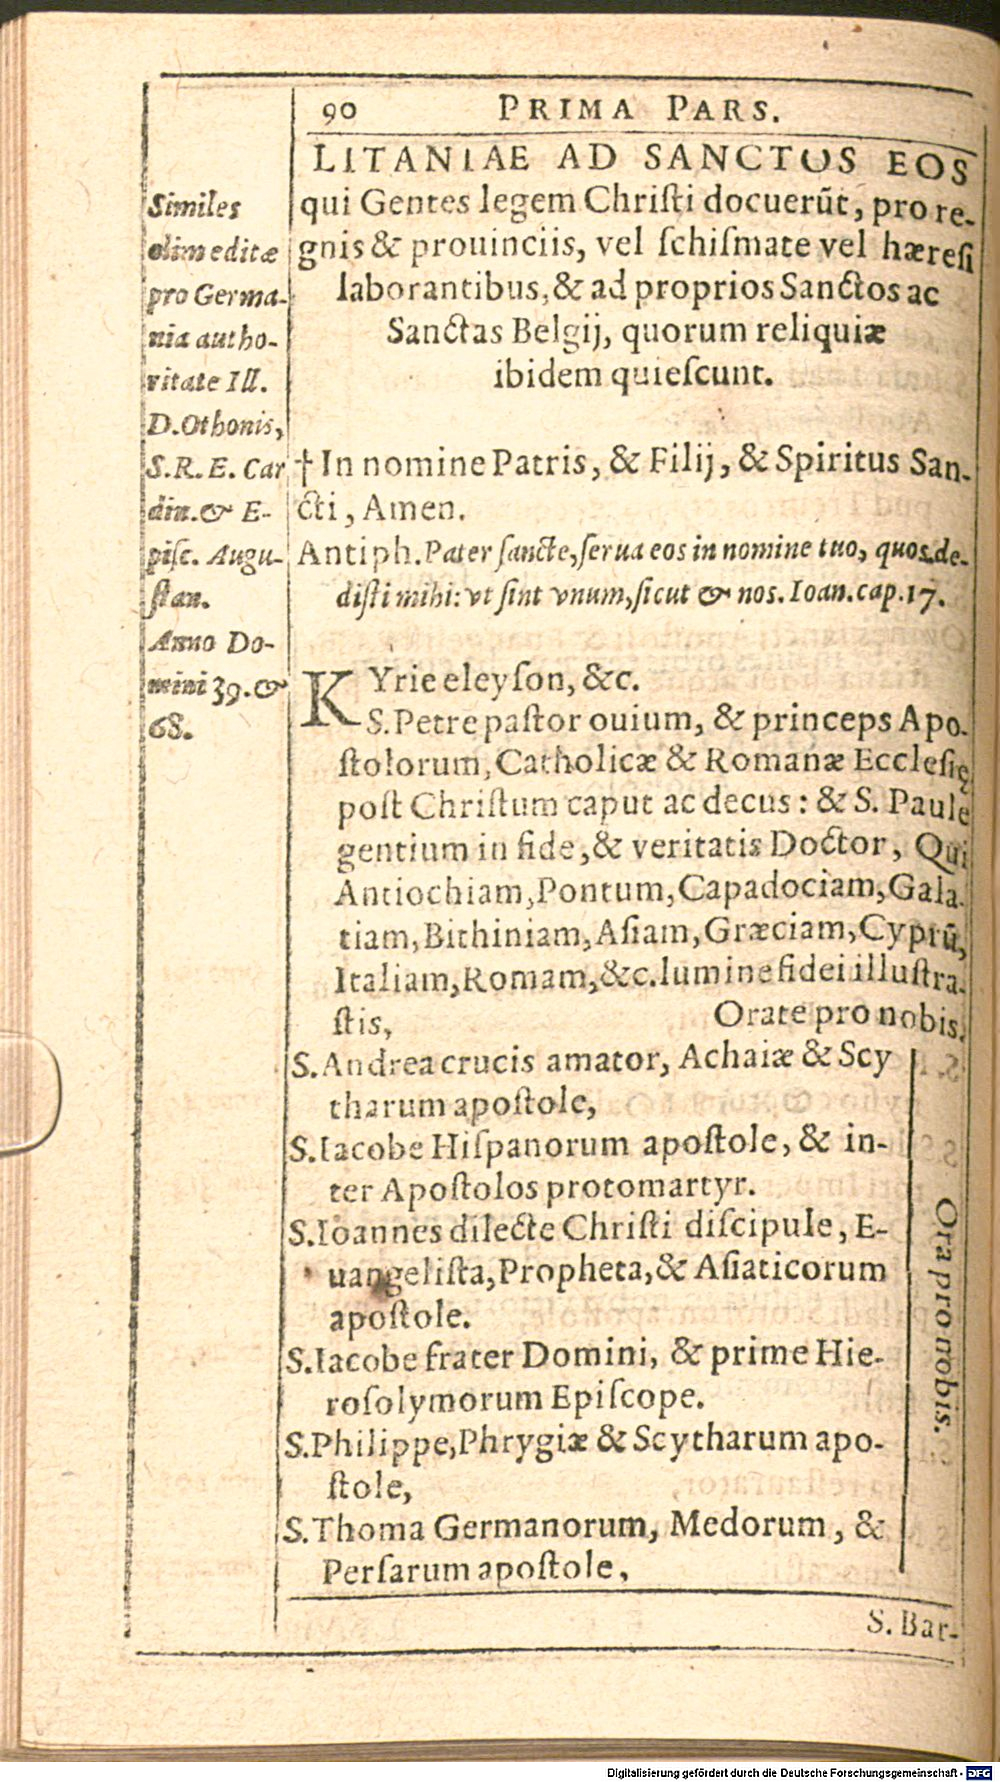 90 PRIMA PARS.
LITANIAE AD SANCTOS EOS
qui Gentes legem Chriſti docuerūt, pro re-
gnis & prouinciis, vel ſchiſmate vel hæreſi
laborantibus, & ad proprios Sanctos ac
Sanctas Belgij, quorum reliquiæ
ibidem quieſcunt.
Similes
olim editæ
pro Germa-
nia autho-
ritate Ill.
D. Othonis,
S. R. E. Car
din. & E-
piſc. Augu-
ſtan.
Anno Do-
mini 39. &
68.
† In nomine Patris, & Filij, & Spiritus San-
cti, Amen.
Antiph. Pater ſancte, ſerua eos in nomine tuo, quos de-
diſti mihi: vt ſint vnum, ſicut & nos. Ioan. cap. 17.
KYrie eleyſon, &c.
S. Petre paſtor ouium, & princeps Apo-
ſtolorum, Catholicæ & Romanæ Eccleſię
poſt Chriſtum caput ac decus: & S. Paule
gentium in fide, & veritatis Doctor, Qui
Antiochiam, Pontum, Capadociam, Gala-
tiam, Bithiniam, Aſiam, Græciam, Cyprū,
Italiam, Romam, &c. lumine fidei illuſtra-
ſtis, Orate pro nobis.
S. Andrea crucis amator, Achaiæ & Scy
tharum apoſtole,
S. Iacobe Hiſpanorum apoſtole, & in-
ter Apoſtolos protomartyr.
S. Ioannes dilecte Chriſti diſcipule, E-
uangeliſta, Propheta, & Aſiaticorum
apoſtole.
S. Iacobe frater Domini, & prime Hie-
roſolymorum Epiſcope.
S. Philippe, Phrygiæ & Scytharum apo-
ſtole,
S. Thoma Germanorum, Medorum, &
Perſarum apoſtole,
Ora pro nobis.
S. Bar-
Digitalisierung gefördert durch die Deutsche Forschungsgemeinschaft - DFG